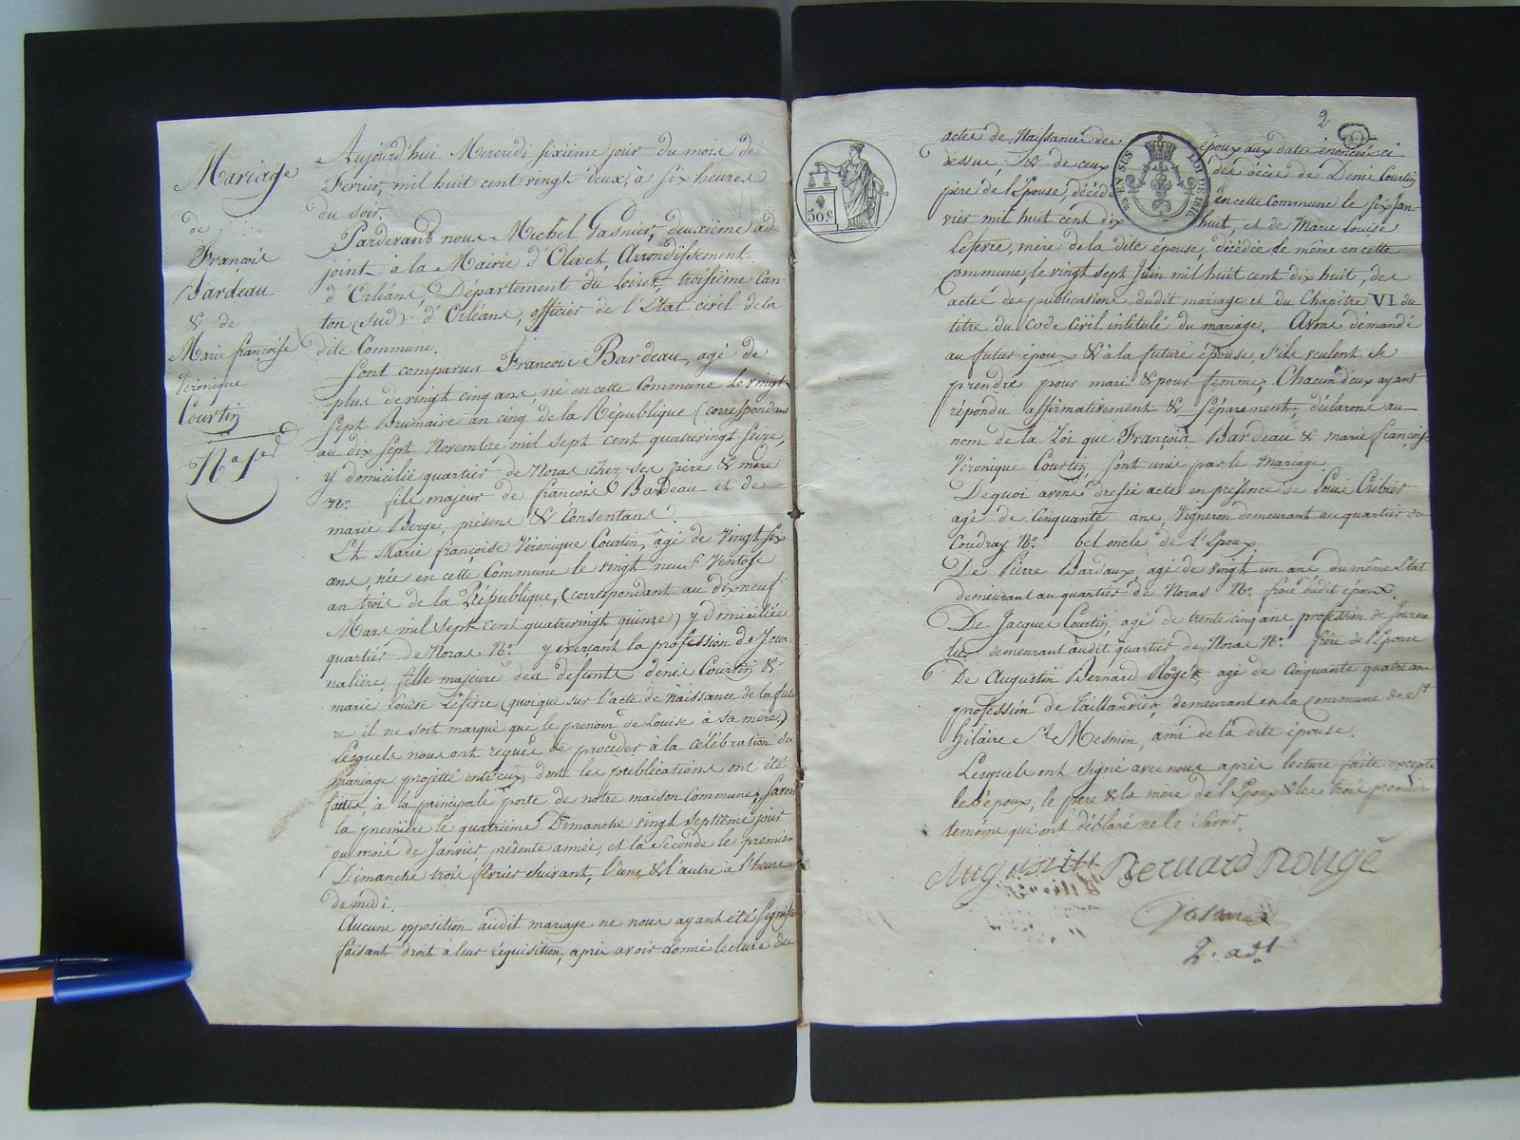 Mariage
de
François
Bardeau
& de
Marie françoise
Véronique
Courtin
N.º 1.er
Aujourd'hui Mercredi sixième jour du mois de
Fevrier, mil huit cent vingt deux, à six heures
du soir.
Pardevant nous Michel Gasnier, deuxième ad-
joint à la Mairie d'Olivet, Arrondissement
d'Orléans, Département du Loiret, troisième Can-
ton (Sud) d'Orléans, officier de l'Etat civil de la
dite Commune.
Sont comparus François Bardeau, agé de
plus de vingt cinq ans, né en cette Commune le vingt
sept Brumaire an cinq de la République (correspondant
au dix sept Novembre mil sept cent quatrevingt seize,
y domicilié quartier de Noras chez ses père & mère
N.º fils majeur de françois Bardeau et de
marie Berge, présens & Consentans.
Et Marie françoise Véronique Courtin, agé de vingt six
ans, née en cette Commune le vingt neuf Ventose
an trois de la République, (correspondant au dixneuf
Mars mil sept cent quatrevingt quinze) y domiciliée
quartier de Noras N.º y exerçant la profession de Jour-
nalière, fille majeure des defunts denis Courtin &
marie Louise Lefevre (quoique sur l'acte de naissance de la futu
re il ne soit marqué que le prenom de Louise à sa mère)
Lesquels nous ont requis de procéder à la célébration du
mariage projetté entr'eux, dont les publications ont été
faites, à la principale porte de notre maison Commune, savoir
la première le quatrième Dimanche vingt septième jour
du mois de Janvier présente année, et la seconde le premier
Dimanche trois février suivant, l'une & l'autre à l'heure
de midi.
Aucune opposition audit mariage ne nous ayant été signifiée
faisant droit à leur réquisition, après avoir donné lecture des
2
actes de Naissance des époux aux dates énoncées ci
dessus & de ceux des décès de Denis Courtin
père de l'Epouse, décédé en cette Commune le six Jan-
vier mil huit cent dix huit, et de Marie Louise
Lefevre, mère de la dite épouse, décédée de même en cette
Commune, le vingt sept Juin mil huit cent dix huit, des
actes de publications dudit mariage et du Chapitre VI du
titre du Code Civil intitulé du mariage. Avons demandé
au futur époux & à la future épouse, s'ils veulent se
prendre pour mari & pour femme, Chacun d'eux ayant
répondu affirmativement & séparement, déclarons au
nom de la Loi que François Bardeau & marie françoise
Véronique Courtin, sont unis par le mariage.
De quoi avons dressé acte en présence de Louis Cribier
agé de Cinquante ans, Vigneron demeurant au quartier du
Coudray N.º bel oncle de l'Epoux
De Pierre Bardaux agé de vingt un ans du même Etat
demeurant au quartier de Noras N.º frère dudit époux.
De Jacque Courtin agé de trente cinq ans profession de Journa
lier demeurant audit quartier de Noras N.º frère de l'épouse
& De Augustin Bernard Rogé, agé de Cinquante quatre ans
profession de Taillandier, demeurant en la Commune de St
hilaire St Mesmin, ami de la dite épouse.
Lesquels ont signé avec nous après lecture faite excepté
les époux, le père & la mère de l'Epoux & les trois premiers
temoins qui ont déclaré ne le savoir.
Augustin Bernard Rougé
Gasnier
2.e adj.t
30.c
EN SUS
LOI DE 1816